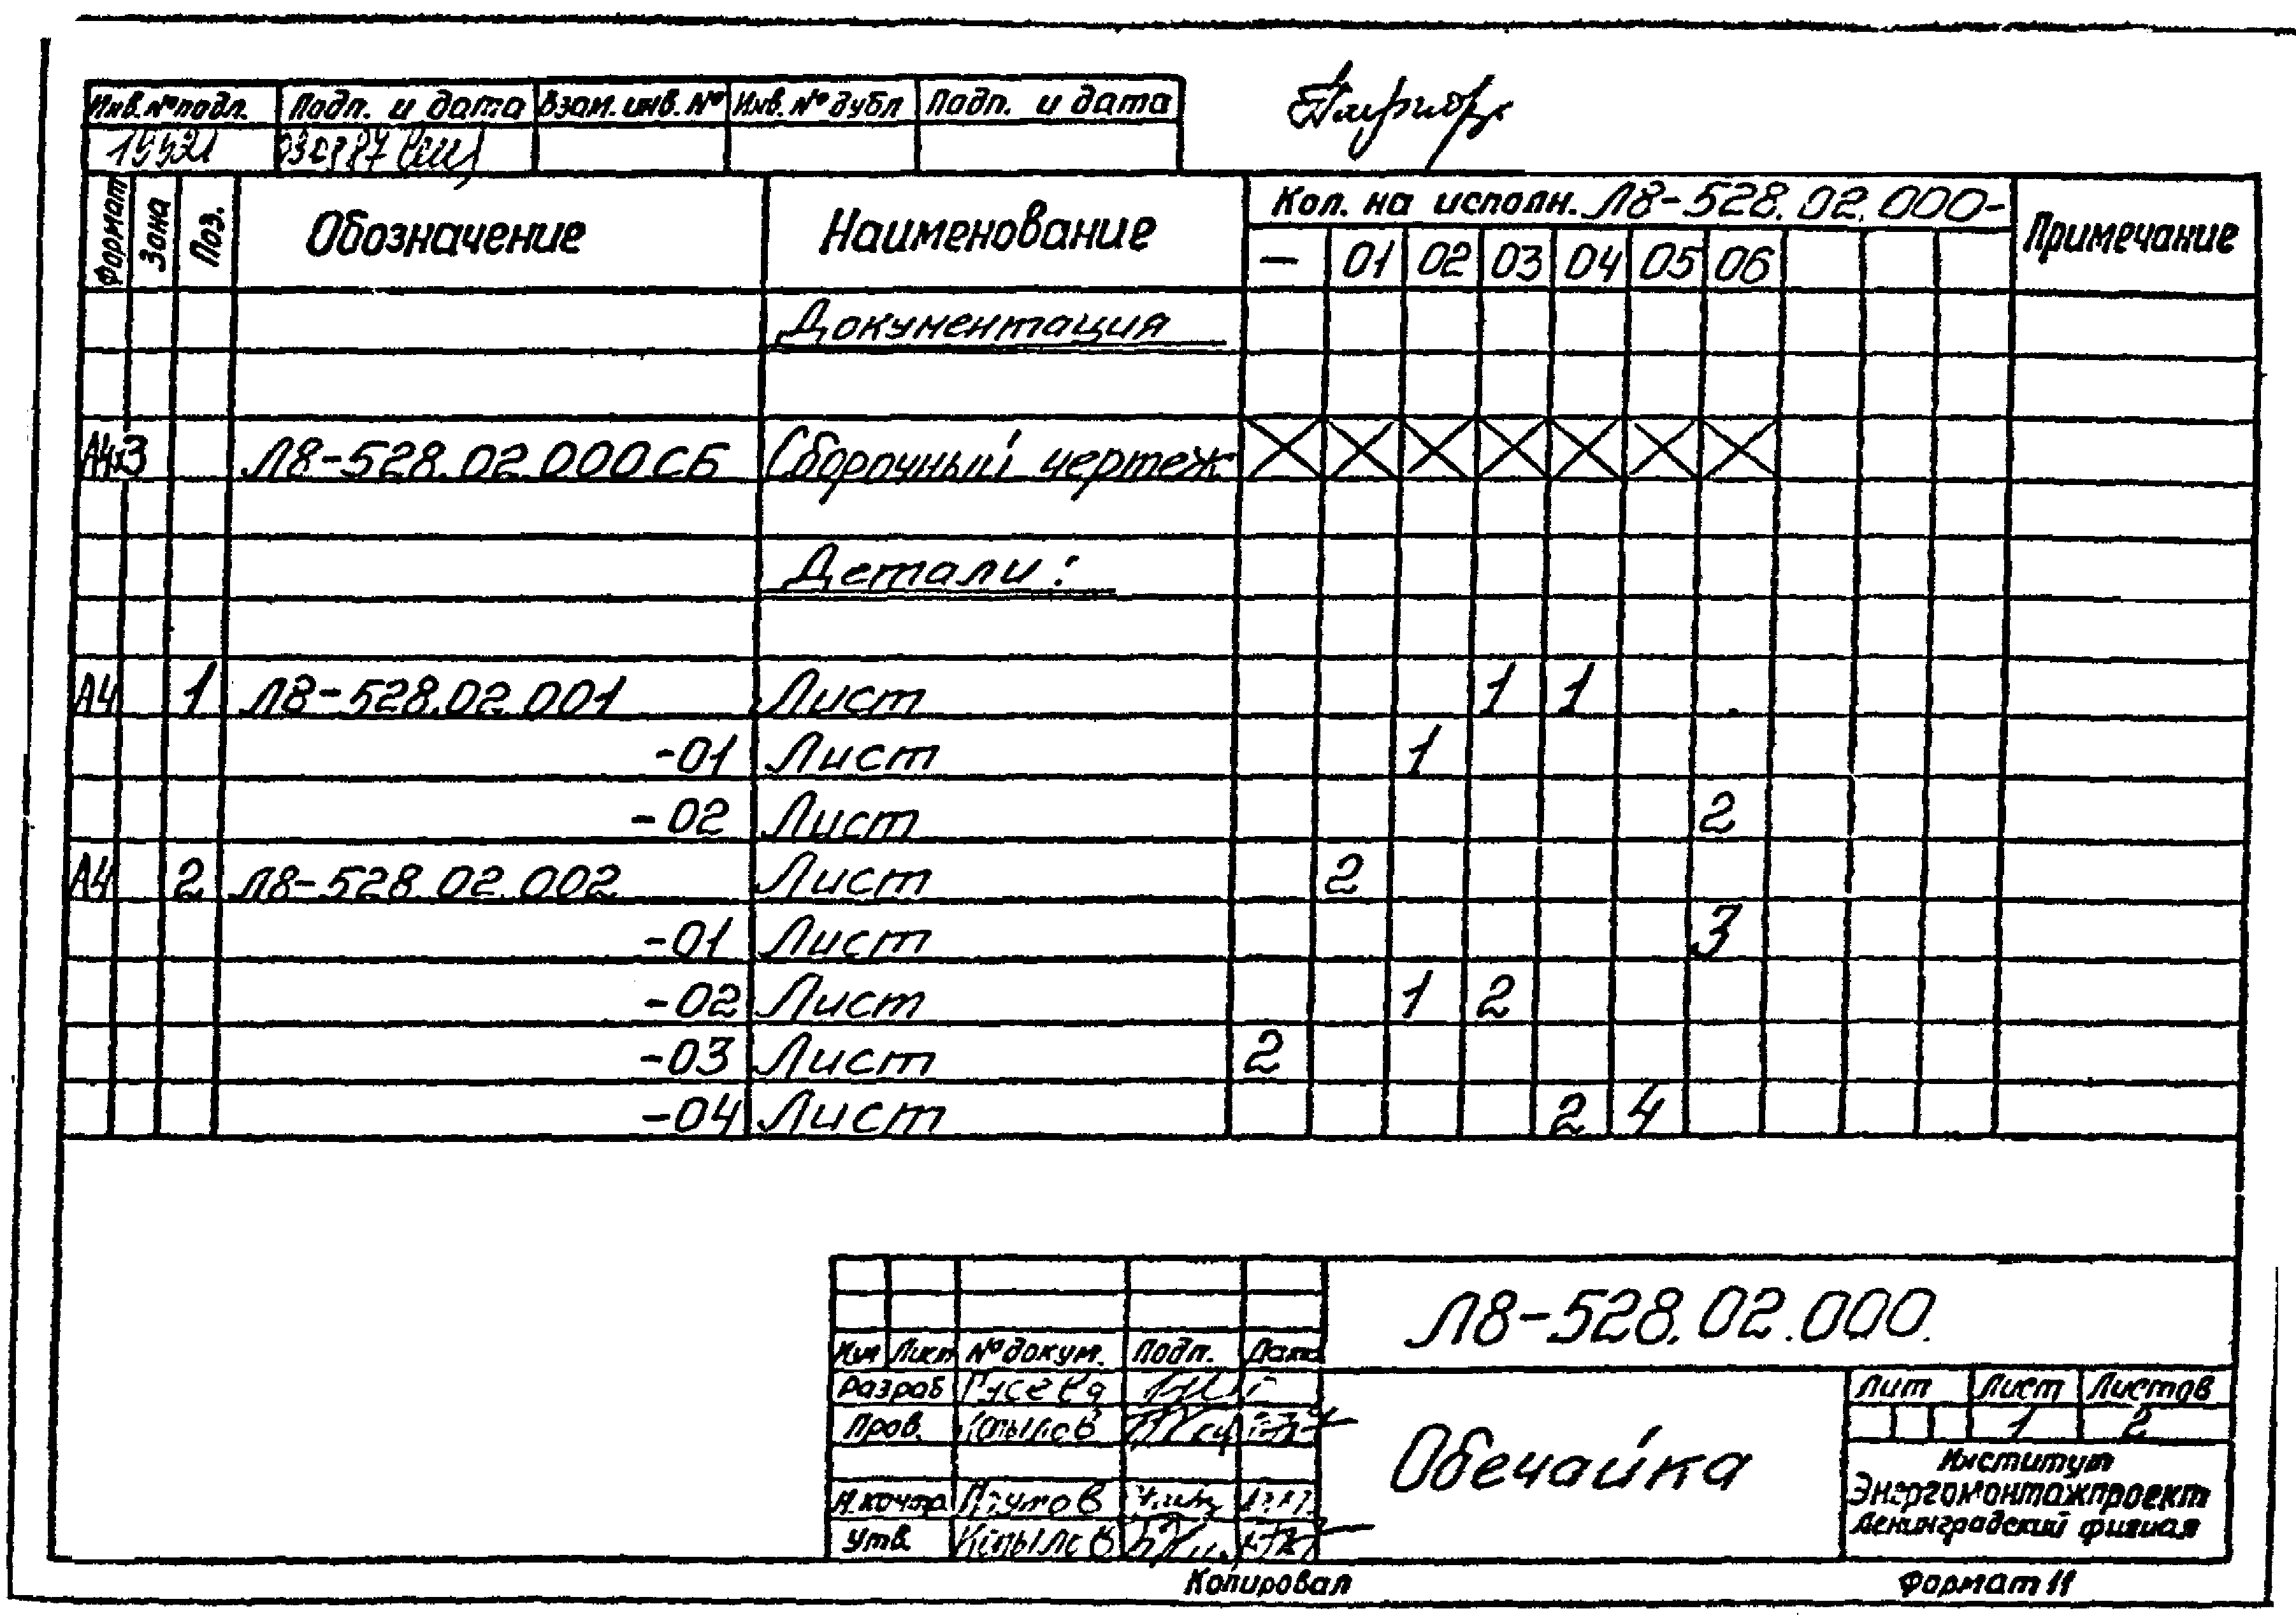 Инв.№ подл. Подп. и дата Взам. инв. № Инв. № дубл Подп. и дата
Формат Зона Поз. Обозначение Наименование Кол. на исполн. Л8-528.02.000- Примечание
— 01 02 03 04 05 06
Документация
А4х3 Л8-528.02.000СБ Сборочный чертеж
Детали:
А4 1 Л8-528.02.001 Лист 1 1
-01 Лист 1
-02 Лист 2
А4 2 Л8-528.02.002 Лист 2
-01 Лист 3
-02 Лист 1 2
-03 Лист 2
-04 Лист 2 4
Л8-528.02.000.
Изм Лист № докум. Подп. Дата
Разраб Гусева
Пров. Копылов
Н.контр.
Утв. Копылов
Обечайка
Лит Лист Листов
1 2
Институт
Энергомонтажпроект
Ленинградский филиал
Копировал Формат 11